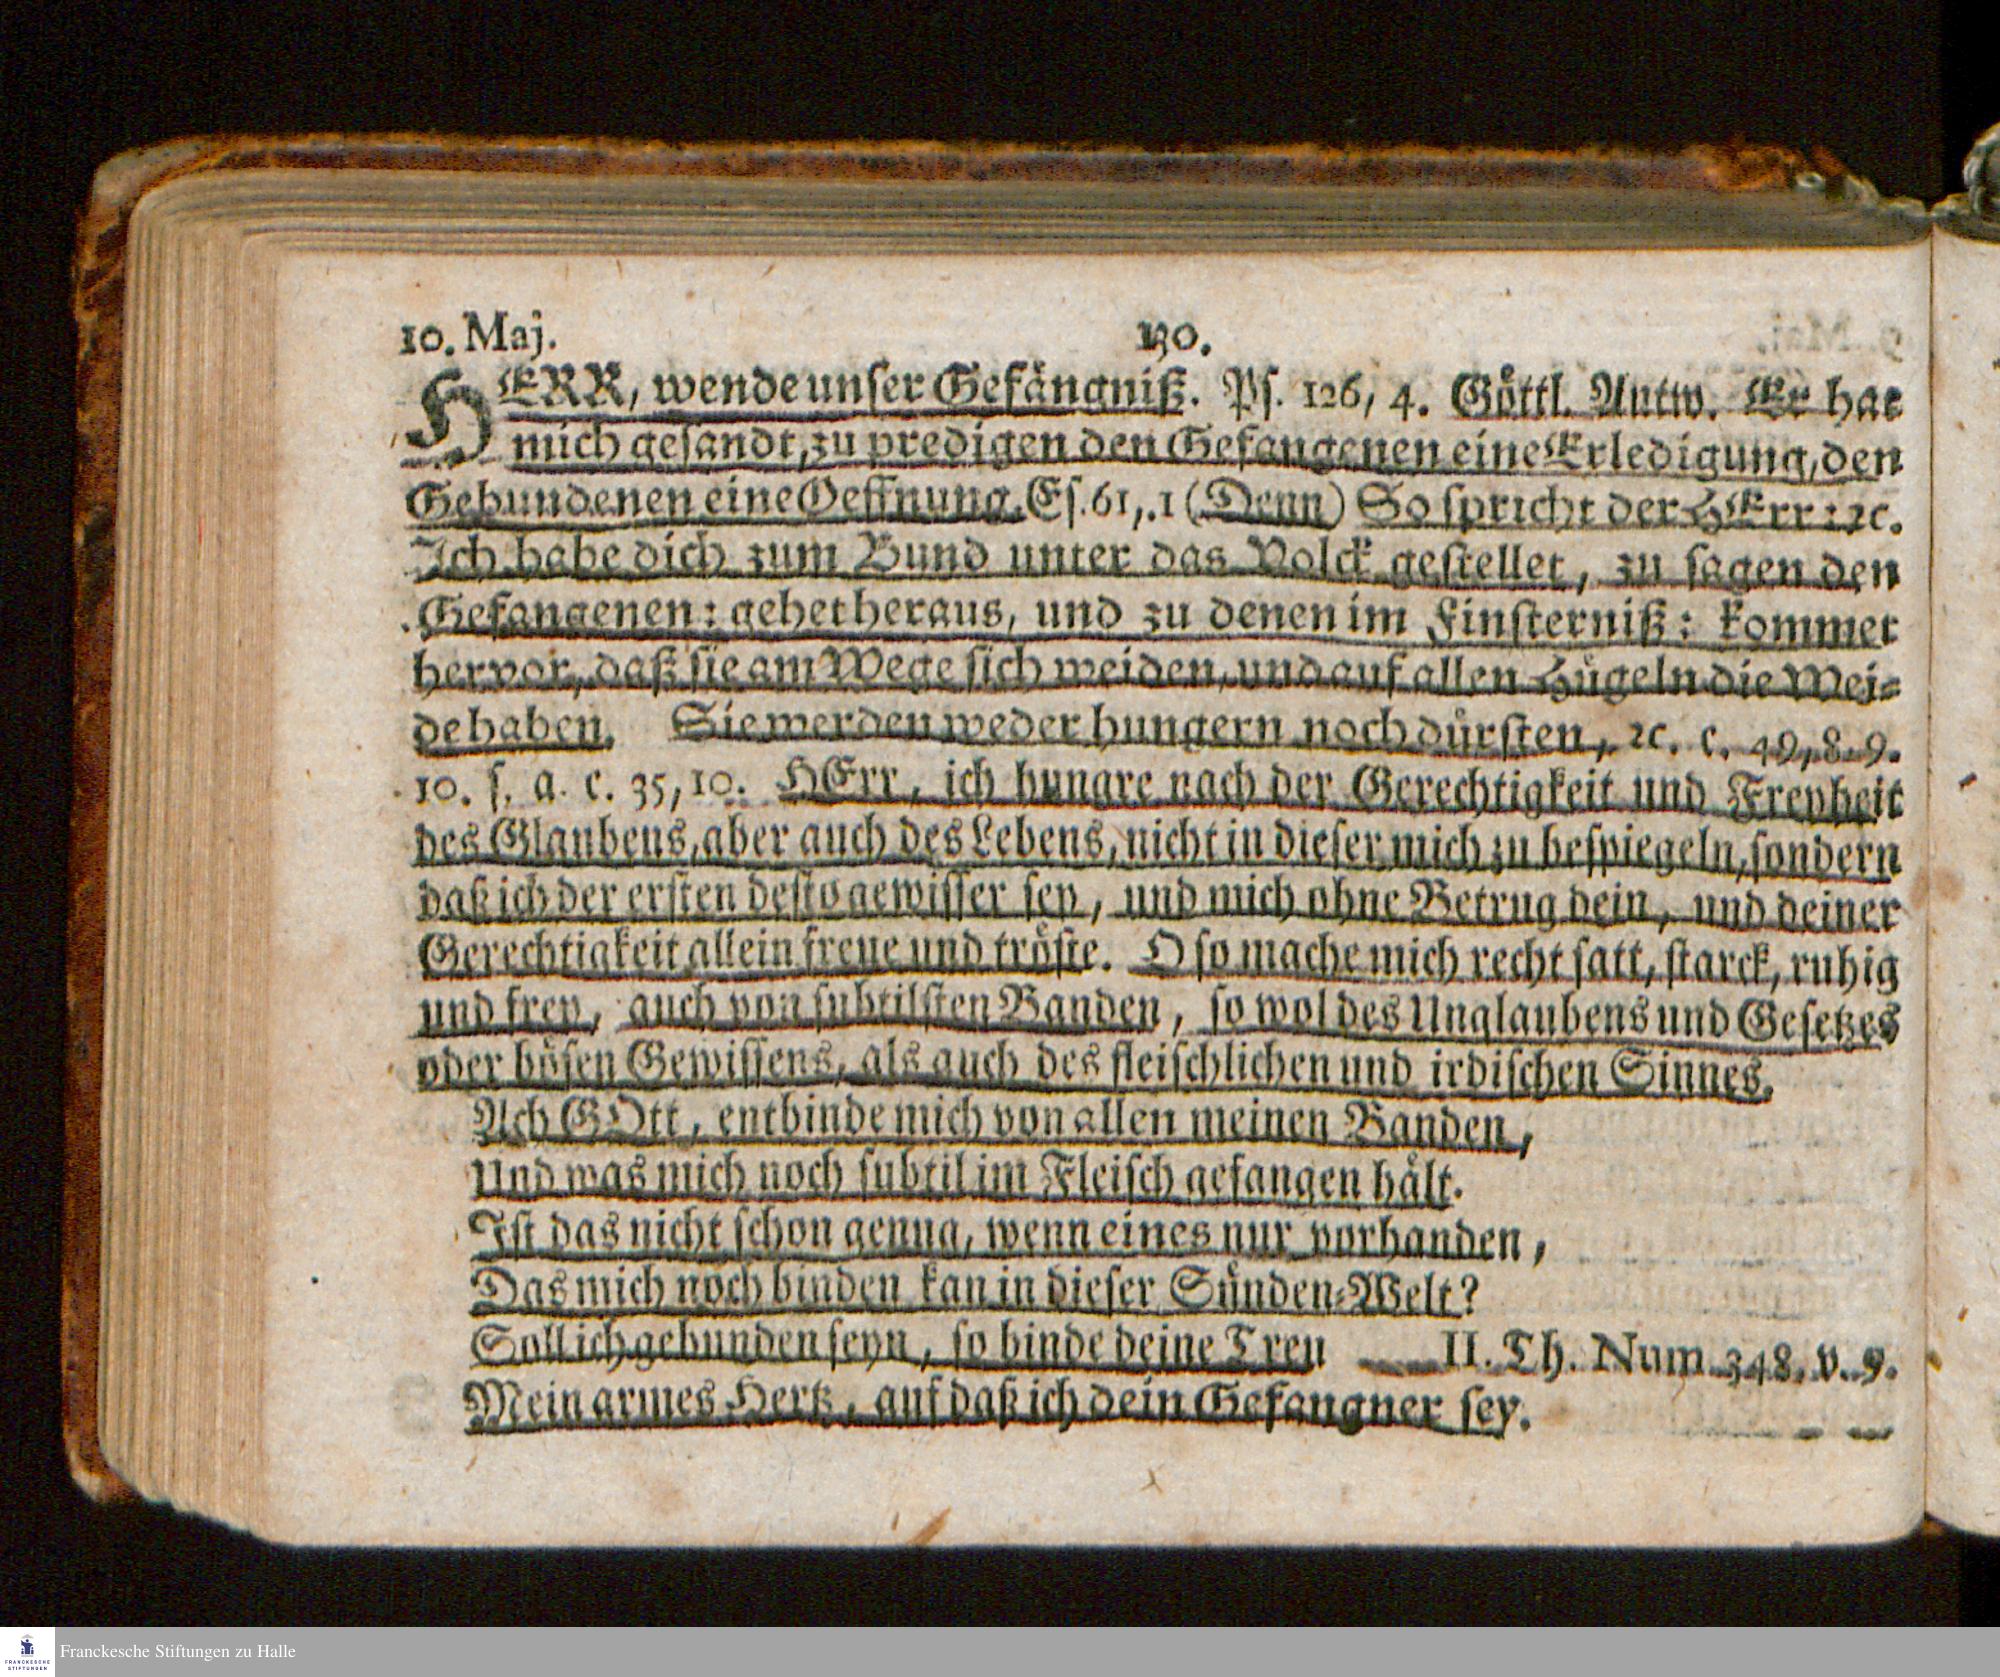 10. Maj. 130.
HERR, wende unser Gefängniß. Ps. 126, 4. Göttl. Antw. Er hat
mich gesandt, zu predigen den Gefangenen eine Erledigung, den
Gebundenen eine Oeffnung. Es. 61,.1 (Denn) So spricht der HErr: ꝛc.
Ich habe dich zum Bund unter das Volck gestellet, zu sagen den
Gefangenen: gehet heraus, und zu denen im Finsterniß: kommet
hervor, daß sie am Wege sich weiden, und auf allen Hügeln die Wei-
de haben. Sie werden weder hungern noch dürsten, ꝛc. c. 49, 8. 9.
10. s. a. c. 35, 10. HErr, ich hungre nach der Gerechtigkeit und Freyheit
des Glaubens, aber auch des Lebens, nicht in dieser mich zu bespiegeln, sondern
daß ich der ersten desto gewisser sey, und mich ohne Betrug dein, und deiner
Gerechtigkeit allein freue und tröste. O so mache mich recht satt, starck, ruhig
und frey, auch von subtilsten Banden, so wol des Unglaubens und Gesetzes
oder bösen Gewissens, als auch des fleischlichen und irdischen Sinnes.
Ach GOtt, entbinde mich von allen meinen Banden,
Und was mich noch subtil im Fleisch gefangen hält.
Ist das nicht schon genug, wenn eines nur vorhanden,
Das mich noch binden kan in dieser Sünden-Welt?
Soll ich gebunden seyn, so binde deine Treu II. Th. Num. 348, v. 9.
Mein armes Hertz, auf daß ich dein Gefangner sey.
FRANCKESCHE
STIFTUNGEN
Franckesche Stiftungen zu Halle